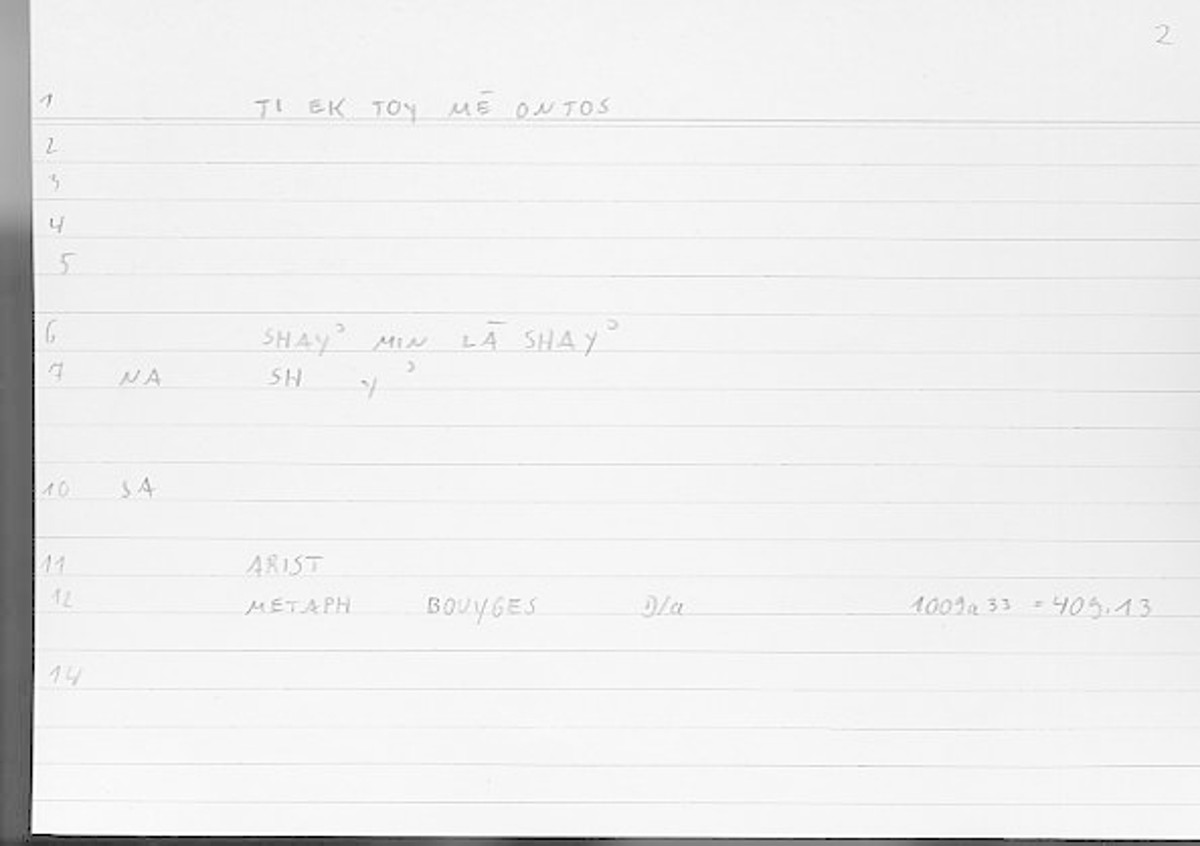 2
1 TI EK TOY MĒ ONTOS
2
3
4
5
6 SHAYʾ MIN LĀ SHAYʾ
7 NA SH Y ʾ
10 SA
11 ARIST
12 METAPH BOUYGES D/a 1009a33 = 409.13
14